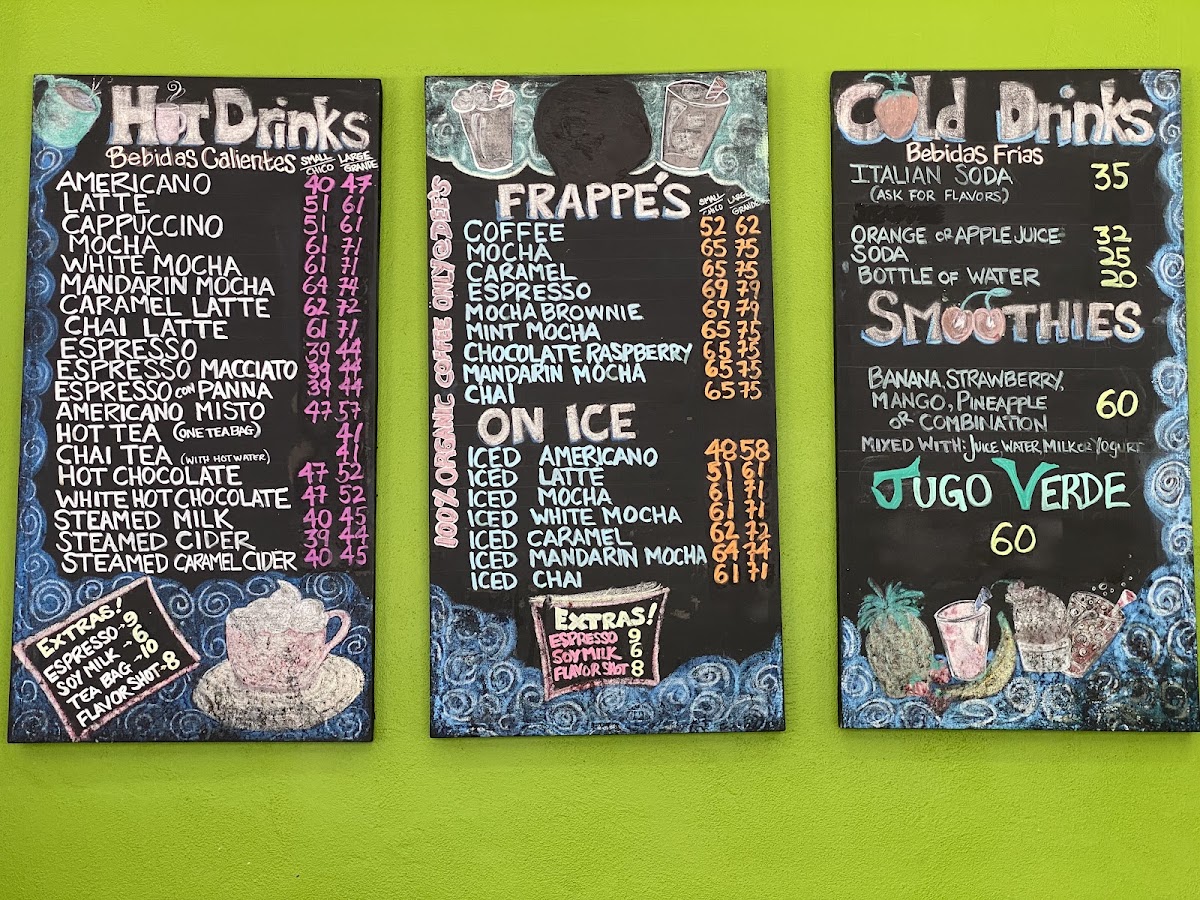 Hot Drinks
Bebidas Calientes SMALL CHICO LARGE GRANDE
AMERICANO 40 47
LATTE 51 61
CAPPUCCINO 51 61
MOCHA 61 71
WHITE MOCHA 61 71
MANDARIN MOCHA 64 74
CARAMEL LATTE 62 72
CHAI LATTE 61 71
ESPRESSO 39 44
ESPRESSO MACCIATO 39 44
ESPRESSO CON PANNA 39 44
AMERICANO MISTO 47 57
HOT TEA (ONE TEA BAG) 41
CHAI TEA (WITH HOT WATER) 41
HOT CHOCOLATE 47 52
WHITE HOT CHOCOLATE 47 52
STEAMED MILK 40 45
STEAMED CIDER 39 44
STEAMED CARAMEL CIDER 40 45
EXTRAS!
ESPRESSO ~ 9
SOY MILK ~ 6
TEA BAG ~ 10
FLAVOR SHOT ~ 8
100% ORGANIC COFFEE ONLY @ DEE'S
FRAPPÉ'S SMALL CHICO LARGE GRANDE
COFFEE 52 62
MOCHA 65 75
CARAMEL 65 75
ESPRESSO 69 79
MOCHA BROWNIE 69 79
MINT MOCHA 65 75
CHOCOLATE RASPBERRY 65 75
MANDARIN MOCHA 65 75
CHAI 65 75
ON ICE
ICED AMERICANO 48 58
ICED LATTE 51 61
ICED MOCHA 61 71
ICED WHITE MOCHA 61 71
ICED CARAMEL 62 72
ICED MANDARIN MOCHA 64 74
ICED CHAI 61 71
EXTRAS!
ESPRESSO 9
SOY MILK 6
FLAVOR SHOT 8
Cold Drinks
Bebidas Frias
ITALIAN SODA 35
(ASK FOR FLAVORS)
ORANGE OR APPLE JUICE 32
SODA 25
BOTTLE OF WATER 20
SMOOTHIES
BANANA, STRAWBERRY,
MANGO, PINEAPPLE 60
OR COMBINATION
MIXED WITH: JUICE, WATER, MILK OR YOGURT
JUGO VERDE
60